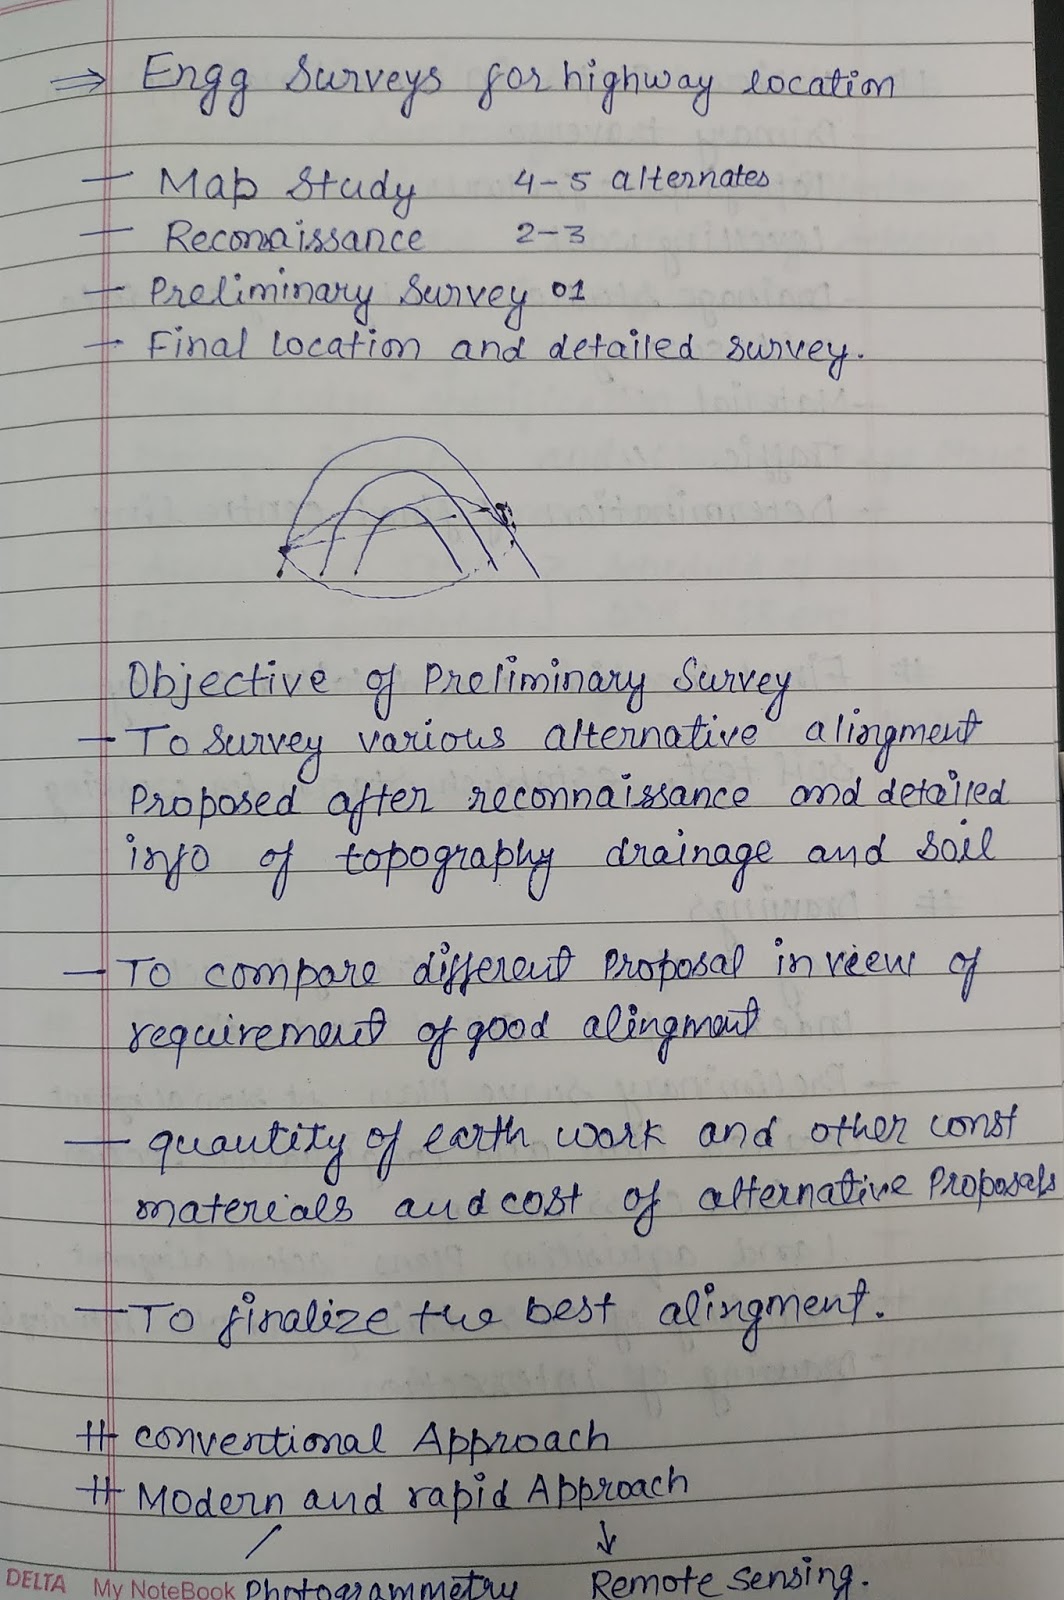 ⇒ Engg Surveys for highway location
— Map Study 4-5 alternates
— Reconaissance 2-3
— Preliminary Survey 01
— Final location and detailed survey.
Objective of Preliminary Survey
— To survey various alternative alingment
proposed after reconnaissance and detailed
info of topography drainage and soil
— To compare different proposal in view of
requirement of good alingment
— quantity of earth work and other const
materials and cost of alternative proposals
— To finalize the best alingment.
# conventional Approach
# Modern and rapid Approach
Photogrammetry Remote sensing.
DELTA My NoteBook